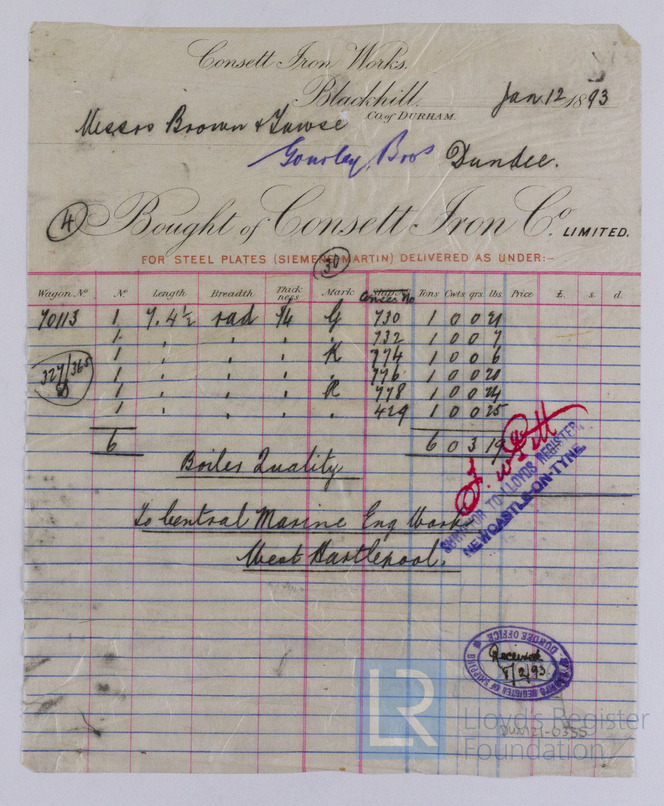 Consett Iron Works.
Blackhill. Jan. 12 1893
Co. of DURHAM.
Messrs Brown & Tawse
Gourlay Bros Dundee.
4 Bought of Consett Iron Co. LIMITED.
FOR STEEL PLATES (SIEMENS-MARTIN) DELIVERED AS UNDER:-
30
Wagon No No Length Breadth Thickness Mark Tons Cwts qrs lbs Price £. s. d.
70113 1 7.4½ rad 1 G 730 1 0 0 21
1 " " " " 732 1 0 0 7
1 " " " K 774 1 0 0 6
327/365 1 " " " " 776 1 0 0 20
8 1 " " " R 778 1 0 0 24
1 " " " " 429 1 0 0 25
6 6 0 3 19
Boiler Quality
SURVEYOR TO LLOYD'S REGISTER,
NEWCASTLE-ON-TYNE.
To Central Marine Eng Works
West Hartlepool.
LLOYD'S REGISTER OF SHIPPING
DUNDEE OFFICE
Received
/2/93
LR
Lloyd's Register
Foundation